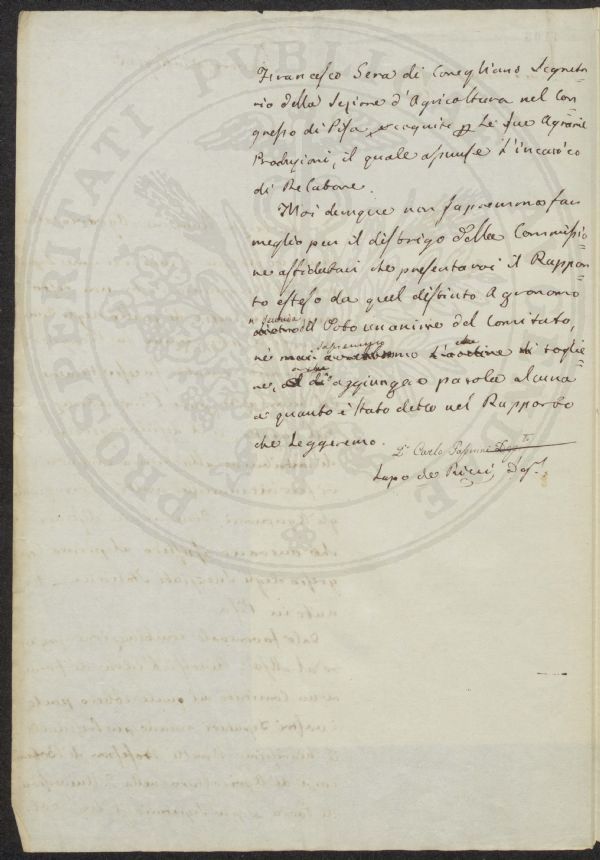 Francesco Gera di Conegliano Segreta=
rio della Sezione d'Agricoltura nel Con=
gresso di Pisa, e cognito per Le sue Agrarie
Produzioni, il quale assunse L'incarico
di Relatore.
Noi dunque non sapremmo far
meglio per il disbrigo della Commissio=
ne affidataci che presentarvi il Rappor=
to esteso da quel distinto Agronomo
dietro il Voto unanime del Comitato,
sapremmo
nè mai avremmo L'ardire di toglie=
re, aggiungere parola alcuna
a quanto è stato detto nel Rapporto
che Leggeremo.
Dr. Carlo Passerini
Lapo de Ricci Dep.
PROSPERITATI PUBLI